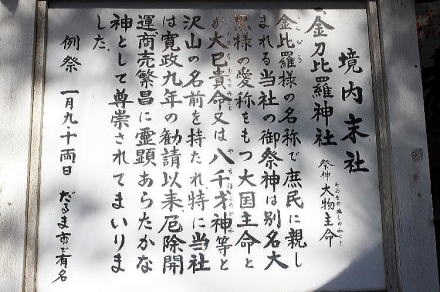 境内末社
金刀比羅神社 祭神 大物主命
金比羅様の名称で庶民に親し
まれる当社の御祭神は別名大
黒様の愛称をもつ大国主命と
か大己貴命又は八千才神等と
沢山の名前を持たれ特に当社
は寛政九年の勧請以来、厄除開
運商売繁昌に霊顕あらたかな
神として尊崇されてまいりま
した。
例祭 一月九・十両日 だるま市で有名